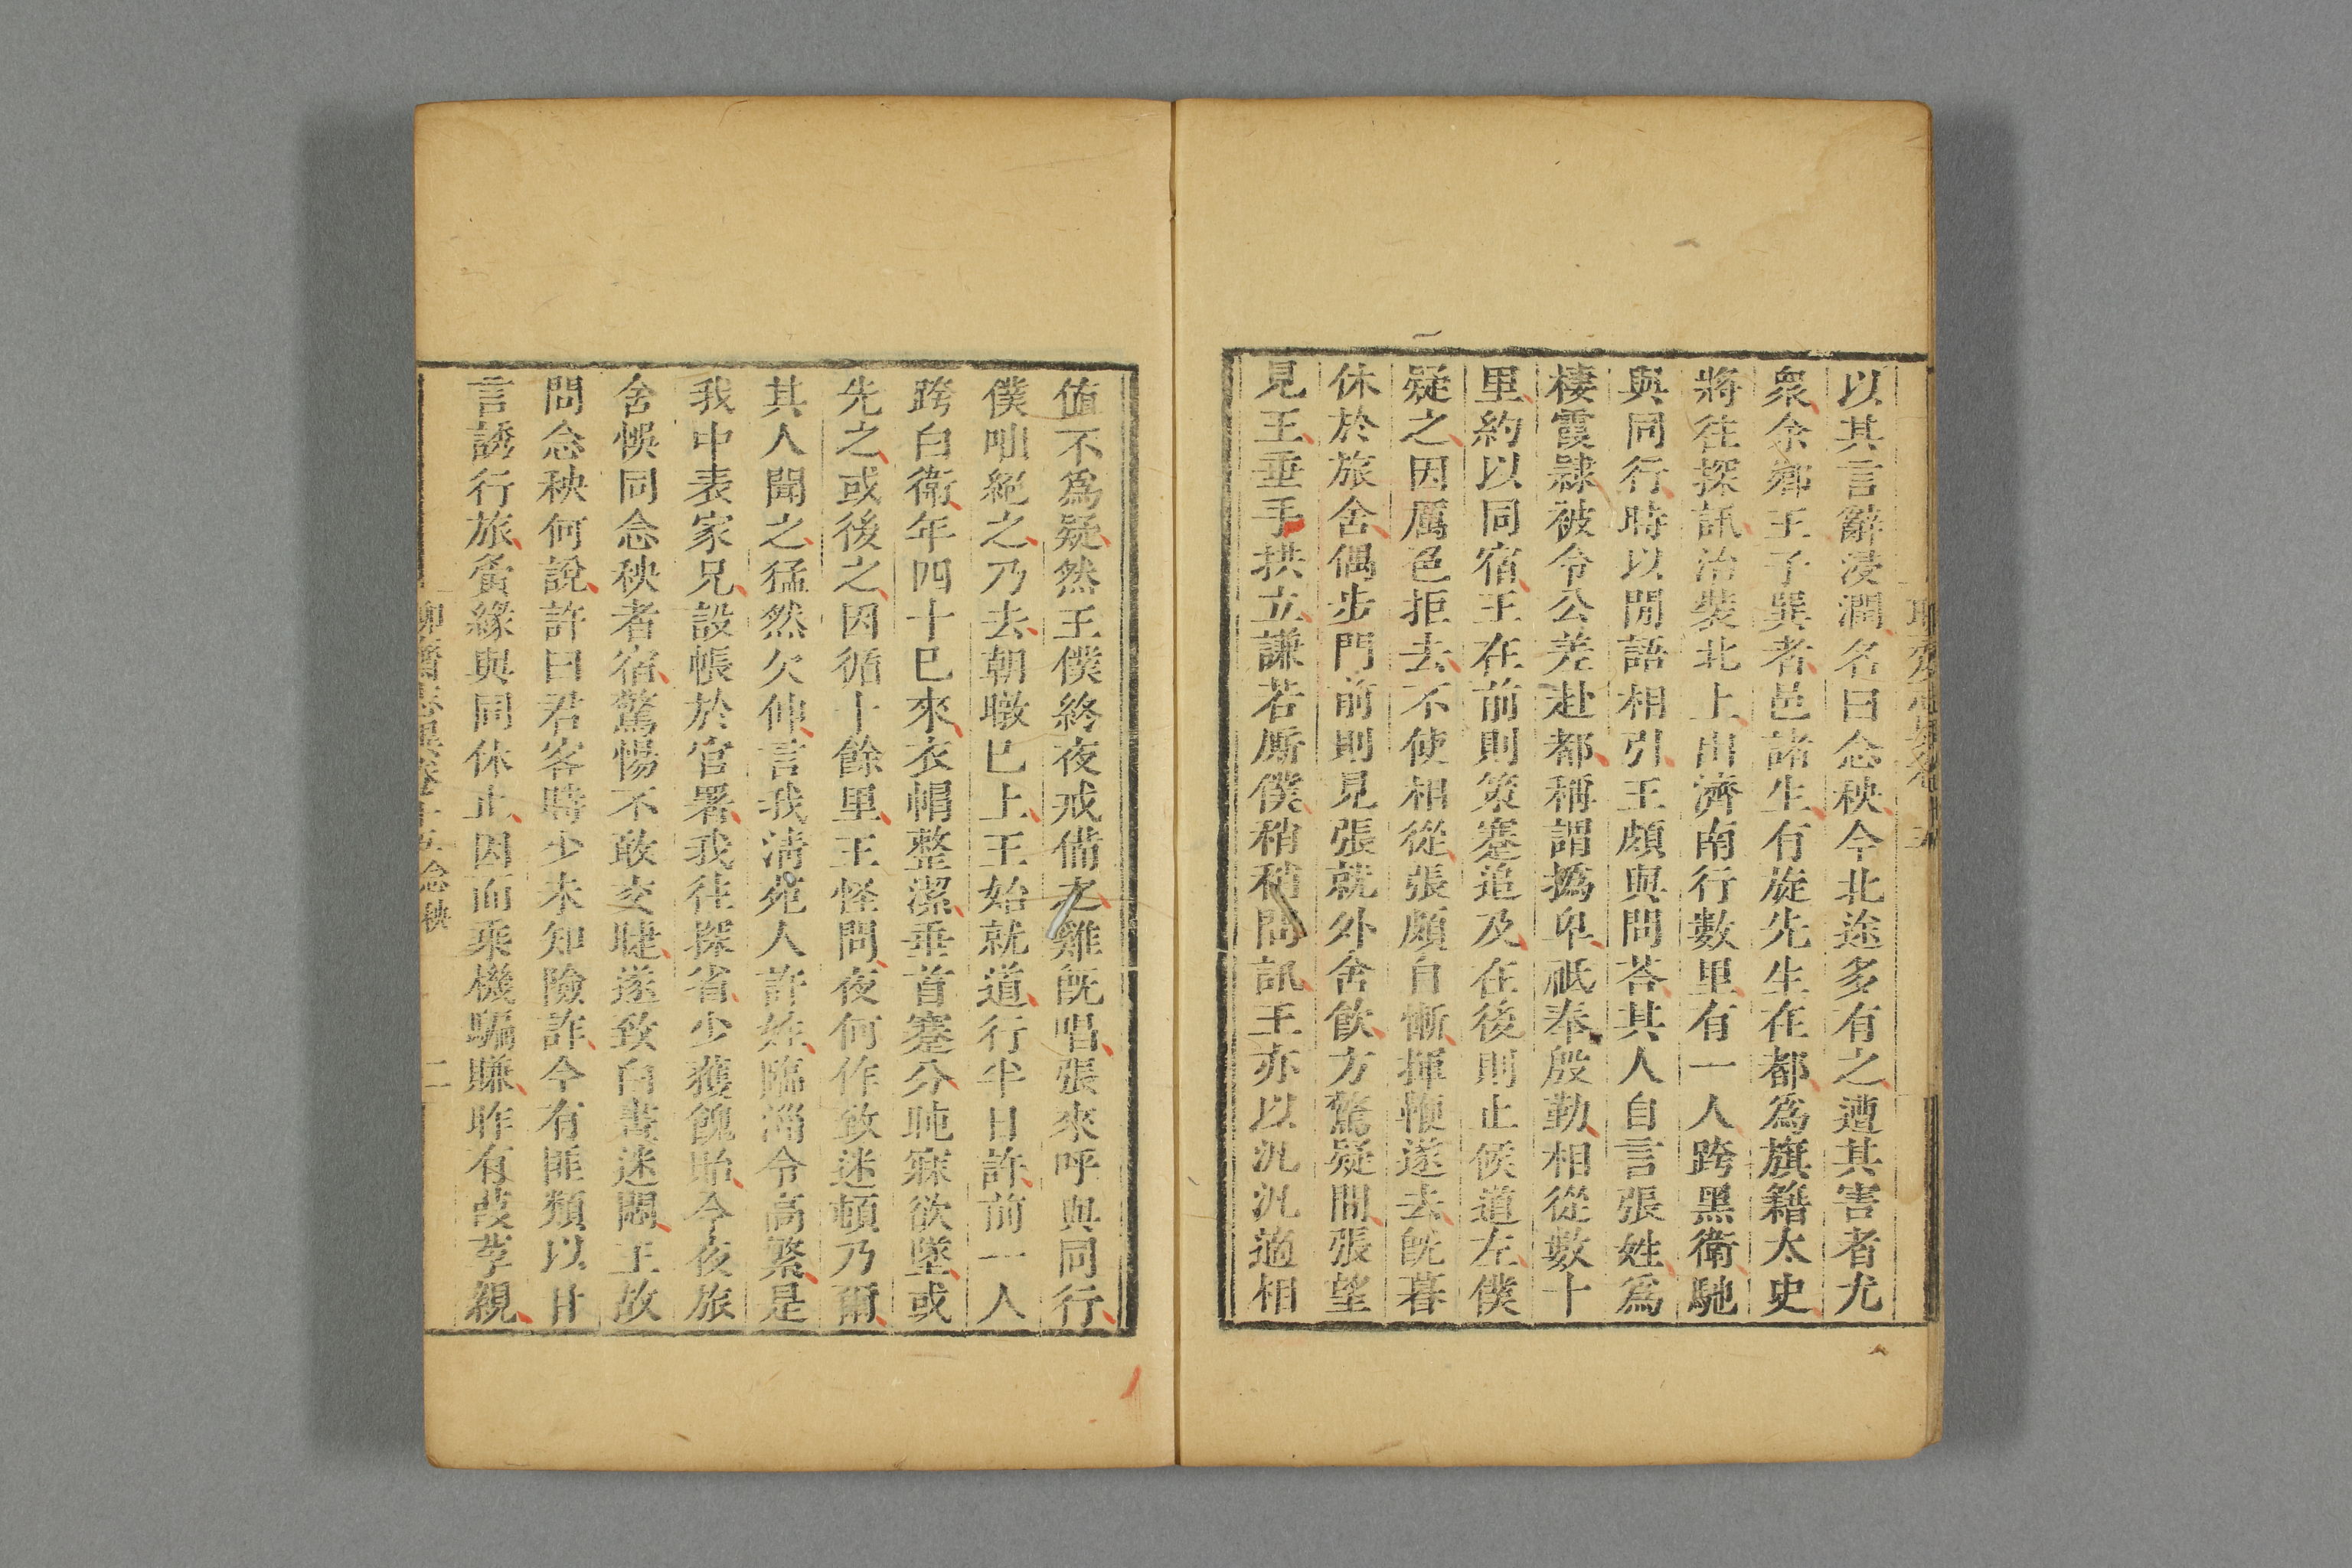 以其言辭浸潤名曰念秧今北途多有之遭其害者尤
衆余鄉王子巽者邑諸生有旋先生在都爲旗籍太史
將往探訊治裝北上出濟南行數里有一人跨黑衛馳
與同行時以閒語相引王頗與問荅其人自言張姓爲
棲霞隸被令公差赴都稱謂撝卑祇奉殷勤相從數十
里約以同宿王在前則策蹇追及在後則止候道左僕
疑之因厲色拒去不使相從張頗自慚揮鞭遂去旣暮
休於旅舍偶步門前則見張就外舍飲方驚疑間張望
見王垂手拱立謙若厮僕稍稍問訊王亦以汎汎適相
値不爲疑然王僕終夜戒備之雞旣唱張來呼與同行
僕咄絕之乃去朝暾已上王始就道行半日許前一人
跨白衛年四十已來衣帽整潔垂首蹇分盹寐欲墜或
先之或後之因循十餘里王怪問夜何作致迷頓乃爾
其人聞之猛然欠伸言我淸苑人許姓臨淄令高檠是
我中表家兄設帳於官署我往探省少獲餽貽今夜旅
舍悞同念秧者宿驚惕不敢交睫遂致白晝迷悶王故
問念秧何說許曰君客時少未知險詐今有匪類以甘
言誘行旅夤緣與同休止因而乘機騙賺昨有葭莩親
聊齋志異卷十五念秧 二